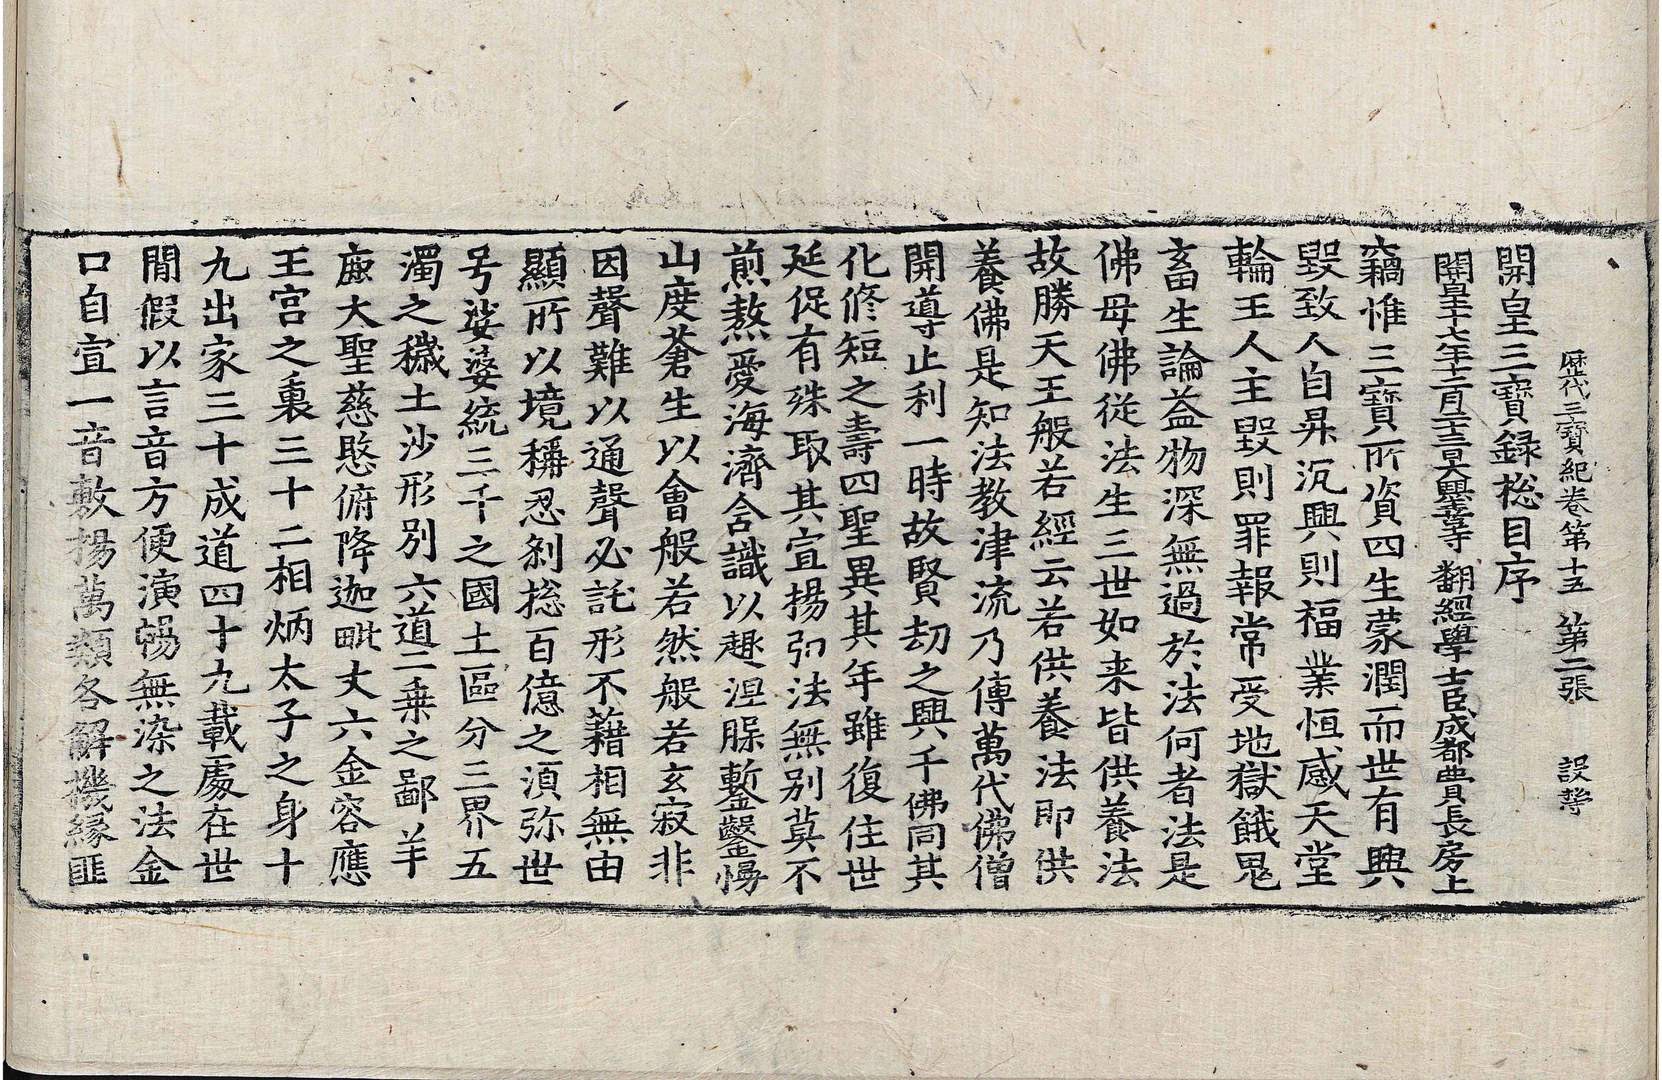 歴代三寶紀卷第十五 第二張 設夢
開皇三寶録㧾目序
開皇十七年十二月二十三日大興善寺翻經學士臣成都費長房上
竊惟三寶所資四生蒙潤而世有興
毀致人自昇沉興則福業恒感天堂
輪王人主毀則罪報常受地獄餓鬼
畜生論益物深無過於法何者法是
佛母佛從法生三世如来皆供養法
故勝天王般若經云若供養法即供
養佛是知法教津流乃傳萬代佛僧
開導止利一時故賢刼之興千佛同其
化修短之壽四聖異其年雖復住世
延促有殊取其宣揚弘法無別莫不
煎熬愛海濟含識以趣涅槃鏨鑿慢
山度蒼生以會般若然般若玄寂非
因聲難以通聲必託形不藉相無由
顯所以境稱忍剎㧾百億之湏弥世
号娑婆統三千之國土區分三界五
濁之穢土沙形別六道二乗之鄙羊
鹿大聖慈愍俯降迦毗丈六金容應
王宮之裏三十二相炳太子之身十
九出家三十成道四十九載處在世
閒假以言音方便演暢無染之法金
口自宣一音敷揚萬類各解機縁匪